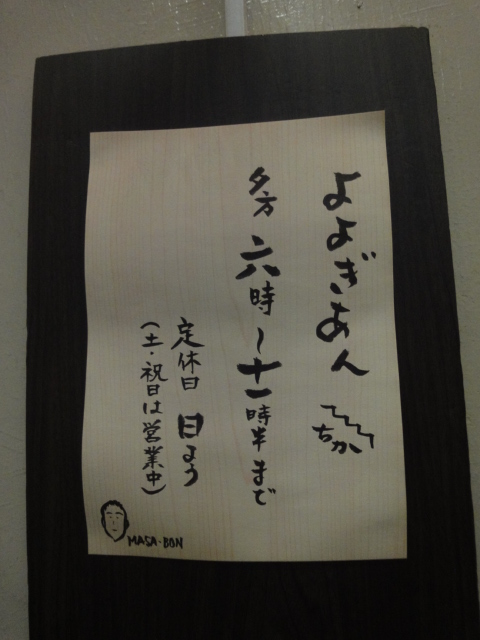 よよぎあん
ちか
夕方 六時〜十一時半まで
定休日 日よう
(土・祝日は営業中)
MASA-BON